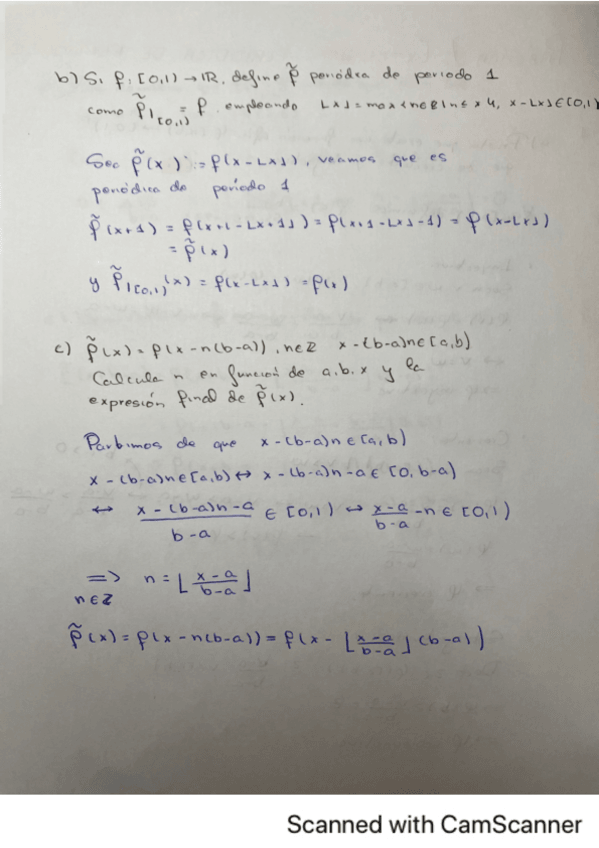 b) Si f: [0,1) → ℝ, define f̃ periódica de periodo 1
como f̃|[0,1) = f empleando ⌊x⌋ = max{n∈ℤ | n ≤ x}, x-⌊x⌋ ∈ [0,1)
Sea f̃(x) := f(x-⌊x⌋), veamos que es
periódica de período 1
f̃(x+1) = f(x+1-⌊x+1⌋) = f(x+1-⌊x⌋-1) = f(x-⌊x⌋)
= f̃(x)
y f̃|[0,1)(x) = f(x-⌊x⌋) = f(x)
c) f̃(x) = f(x-n(b-a)), n∈ℤ x-(b-a)n∈[a,b)
Calcula n en función de a,b,x y la
expresión final de f̃(x).
Partimos de que x-(b-a)n∈[a,b)
x-(b-a)n∈[a,b) ↔ x-(b-a)n-a∈[0,b-a)
↔ (x-(b-a)n-a)/(b-a) ∈ [0,1) ↔ (x-a)/(b-a) - n ∈ [0,1)
⟹ n∈ℤ n = ⌊(x-a)/(b-a)⌋
f̃(x) = f(x-n(b-a)) = f(x-⌊(x-a)/(b-a)⌋(b-a))
Scanned with CamScanner